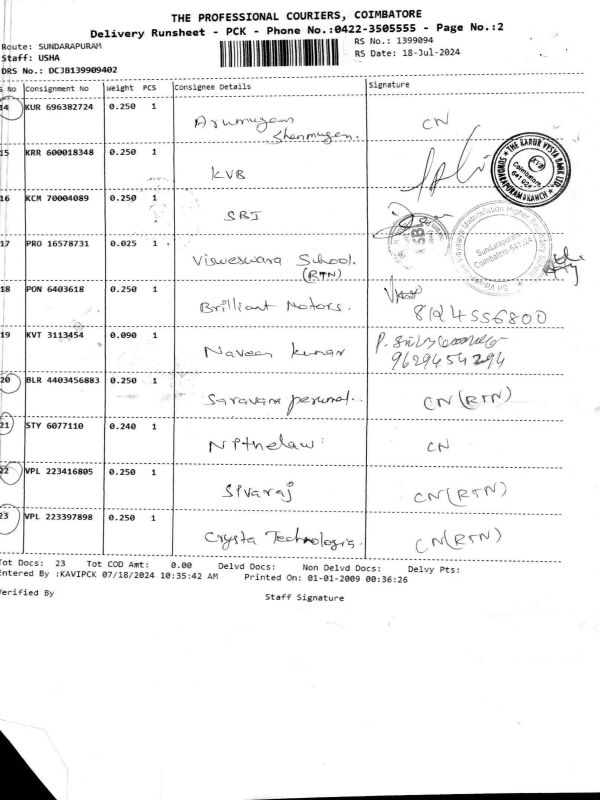 THE PROFESSIONAL COURIERS, COIMBATORE
Delivery Runsheet - PCK - Phone No.:0422-3505555 - Page No.:2
Route: SUNDARAPURAM
RS No.: 1399094
Staff: USHA
RS Date: 18-Jul-2024
DRS No.: DCJB139909402
S No Consignment No Weight PCS Consignee Details Signature
14 KUR 696382724 0.250 1
Arumugam
Shanmugam.
CN
15 KRR 600018348 0.250 1
KVB
THE KARUR VYSYA BANK LTD.
KVB
Coimbatore
641 024
SUNDARAPURAM BRANCH
16 KCM 70004089 0.250 1
SBI
17 PRO 16578731 0.025 1
Visweswara School.
(RTN)
Sundarapuram
Coimbatore-641 024
18 PON 6403618 0.250 1
Brilliant Motors.
8124556800
19 KVT 3113454 0.090 1
Naveen kumar
9629454294
20 BLR 4403456883 0.250 1
Saravana perumal.
CN (RTN)
21 STY 6077110 0.240 1
CN
22 VPL 223416805 0.250 1
Sivaraj
CN (RTN)
23 VPL 223397898 0.250 1
Crysta Technologis.
CN (RTN)
Tot Docs: 23 Tot COD Amt: 0.00 Delvd Docs: Non Delvd Docs: Delvy Pts:
Entered By :KAVIPCK 07/18/2024 10:35:42 AM Printed On: 01-01-2009 00:36:26
Verified By
Staff Signature